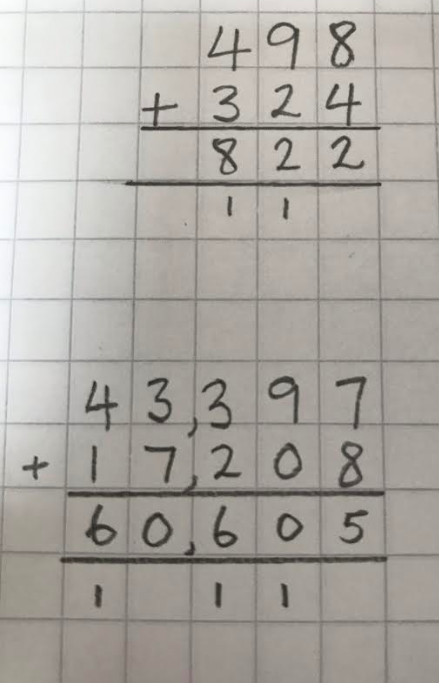 498
+ 324
822
11
43,397
+ 17,208
60,605
1 11